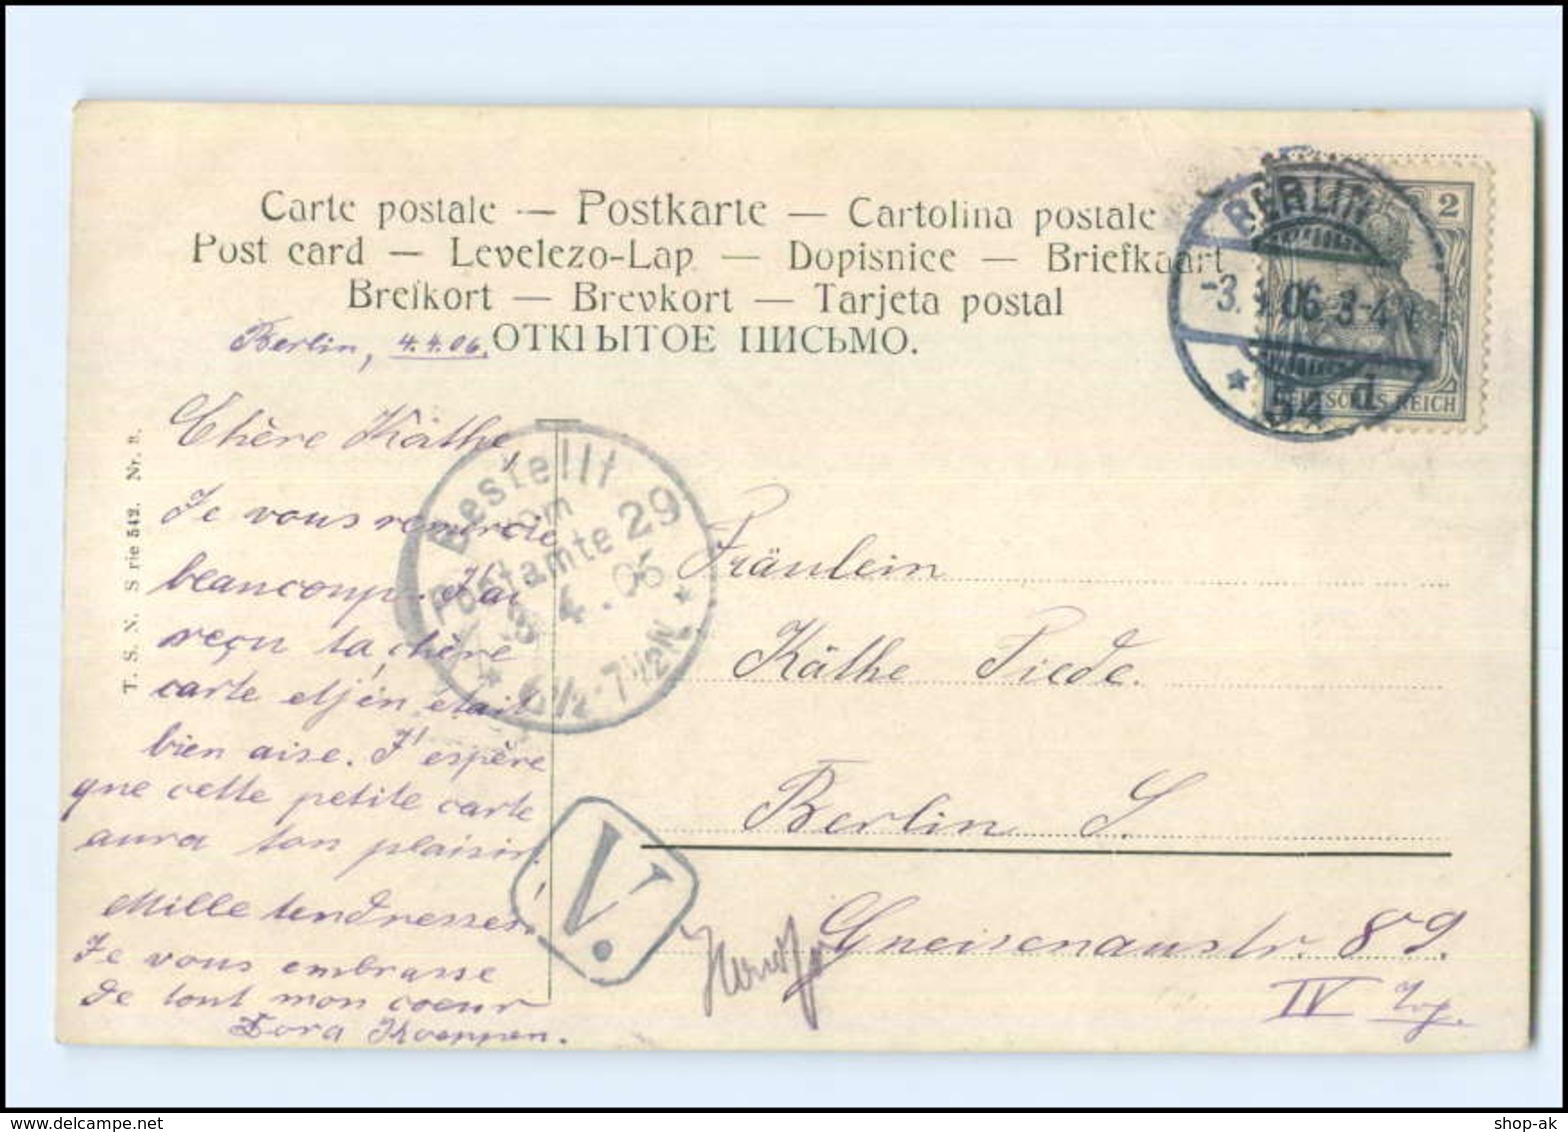 Carte postale — Postkarte — Cartolina postale
Post card — Levelezo-Lap — Dopisnice — Briefkaart
Breikort — Brevkort — Tarjeta postal
ОТКРЫТОЕ ПИСЬМО.
BERLIN
-3. 4. 06. 3-4 N
* 54 d
2 2
DEUTSCHES REICH
Berlin, 4.4.06.
Chère Käthe,
Je vous remercie
beaucoup. J'ai
reçu ta chère
carte et j'én était
bien aise. J'espère
que cette petite carte
aura ton plaisir.
Mille tendresses!
Je vous embrasse
de tout mon coeur
Dora Koeppen.
T. S. N. S rie 542. Nr. B.
Bestellt
vom
Postamte 29
3 4. 06
* 6½-7½N. *
V.
Fräulein
Käthe Piede.
Berlin S.
Gneisenaustr. 89.
IV
shop-ak